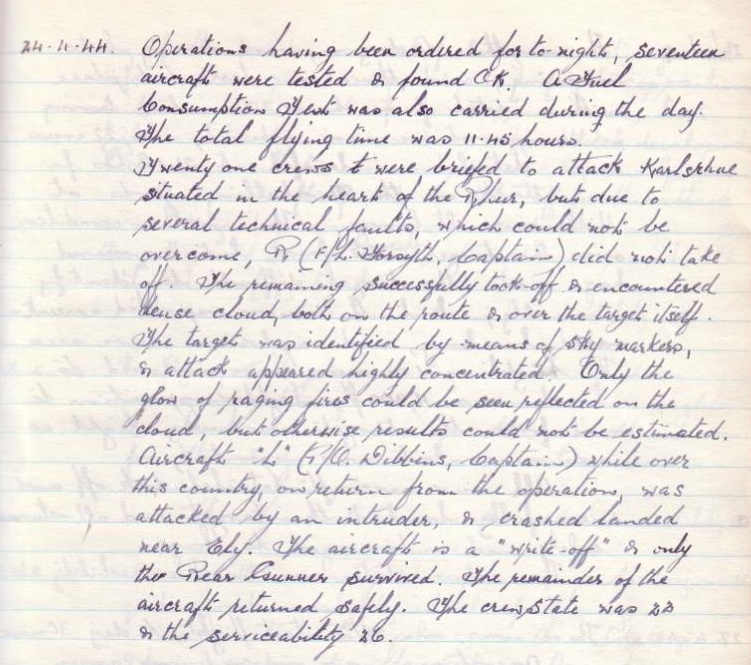 24-11-44. Operations having been ordered for to-night, seventeen
aircraft were tested & found O.K. A Fuel
Consumption Test was also carried during the day.
The total flying time was 11.45 hours.
Twenty one crews were briefed to attack Karlsrhue
situated in the heart of the Rhur, but due to
several technical faults, which could not be
overcome, R (F/L. Forsyth, Captain) did not take
off. The remaining successfully took-off & encountered
dense cloud, both on the route & over the target itself.
The target was identified by means of sky markers,
& attack appeared highly concentrated. Only the
glow of raging fires could be seen reflected on the
cloud, but otherwise results could not be estimated.
Aircraft "L" (F/O. Dibbins, Captain) while over
this country, on return from the operation, was
attacked by an intruder, & crashed landed
near Ely. The aircraft is a "write-off" & only
the Rear Gunner survived. The remainder of the
aircraft returned safely. The crew state was
& the serviceability 26.